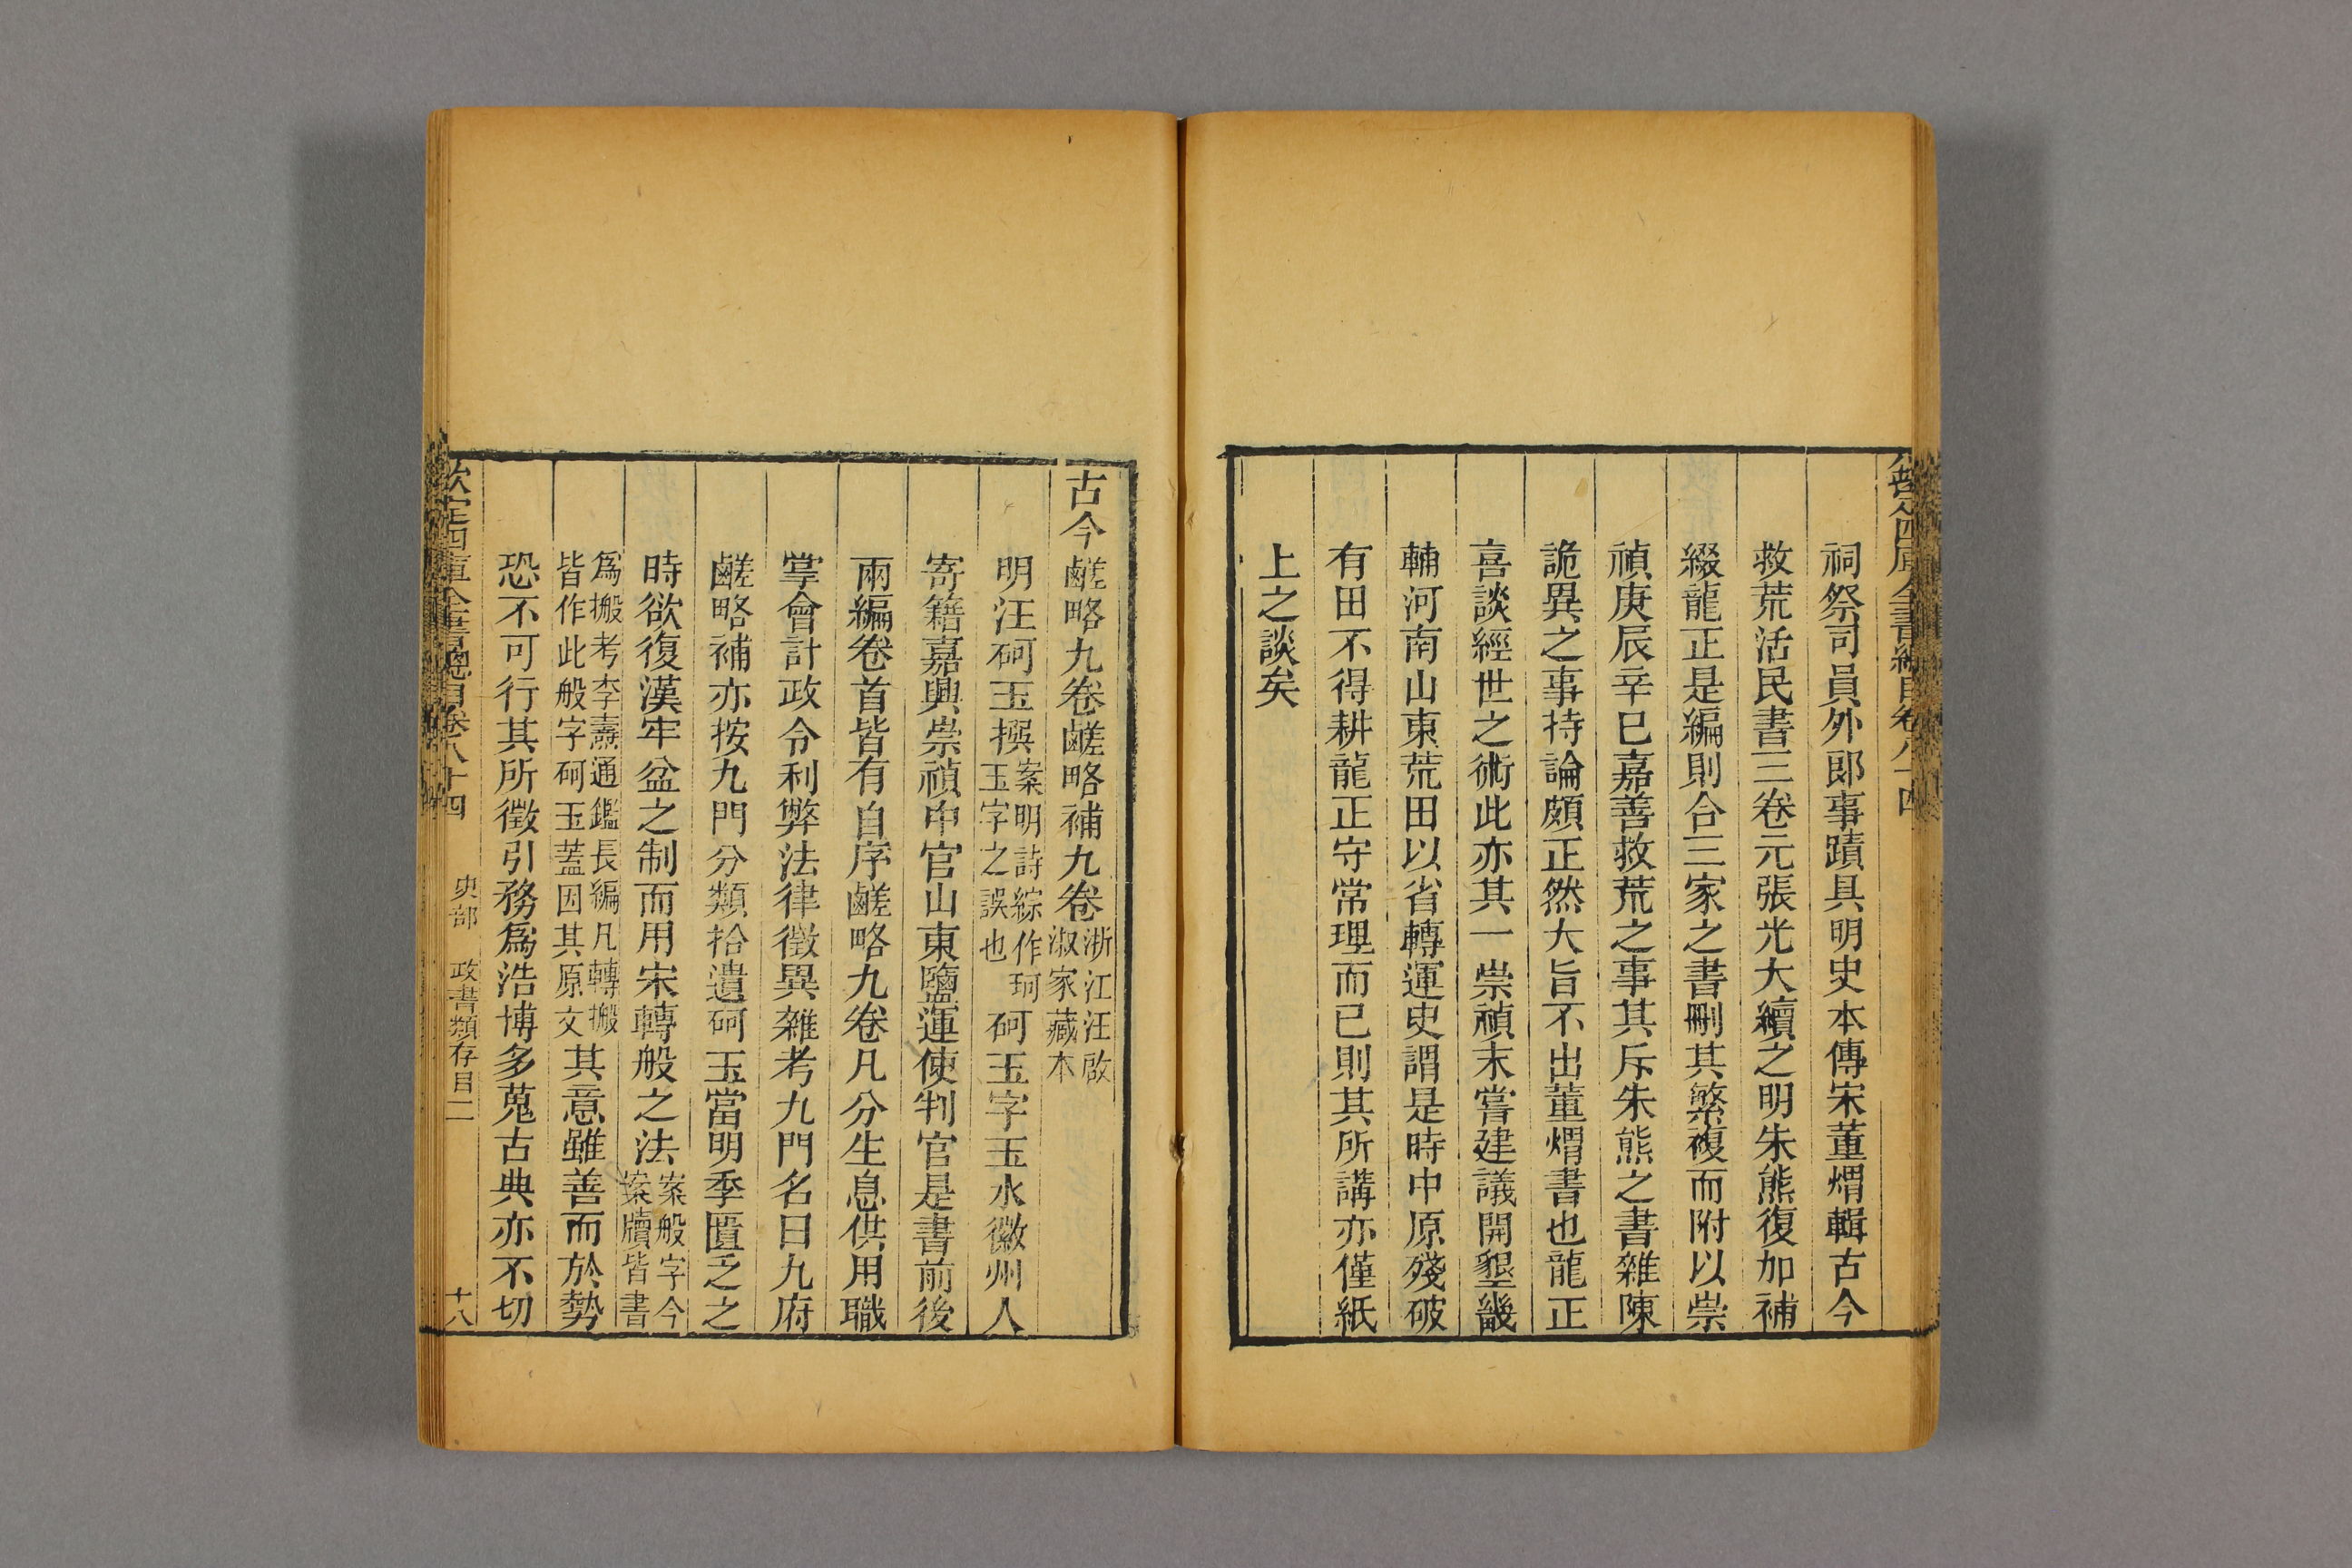 祠祭司員外郎事蹟具明史本傳宋董煟輯古今
救荒活民書三卷元張光大續之明朱熊復加補
綴龍正是編則合三家之書刪其繁複而附以崇
禎庚辰辛巳嘉善救荒之事其斥朱熊之書雜陳
詭異之事持論頗正然大旨不出董煟書也龍正
喜談經世之術此亦其一崇禎末嘗建議開墾畿
輔河南山東荒田以省轉運史謂是時中原殘破
有田不得耕龍正守常理而已則其所講亦僅紙
上之談矣
古今鹺略九卷鹺略補九卷浙江汪啟淑家藏本
明汪砢玉撰案明詩綜作珂玉字之誤也砢玉字玉水徽州人
寄籍嘉興崇禎中官山東鹽運使判官是書前後
兩編卷首皆有自序鹺略九卷凡分生息供用職
掌會計政令利弊法律徵異雜考九門名曰九府
鹺略補亦按九門分類拾遺砢玉當明季匱乏之
時欲復漢牢盆之制而用宋轉般之法案般字今案牘皆書
爲搬考李燾通鑑長編凡轉搬皆作此般字砢玉蓋因其原文其意雖善而於勢
恐不可行其所徵引務爲浩博多蒐古典亦不切
欽定四庫全書總目卷八十四 史部 政書類存目二 十八